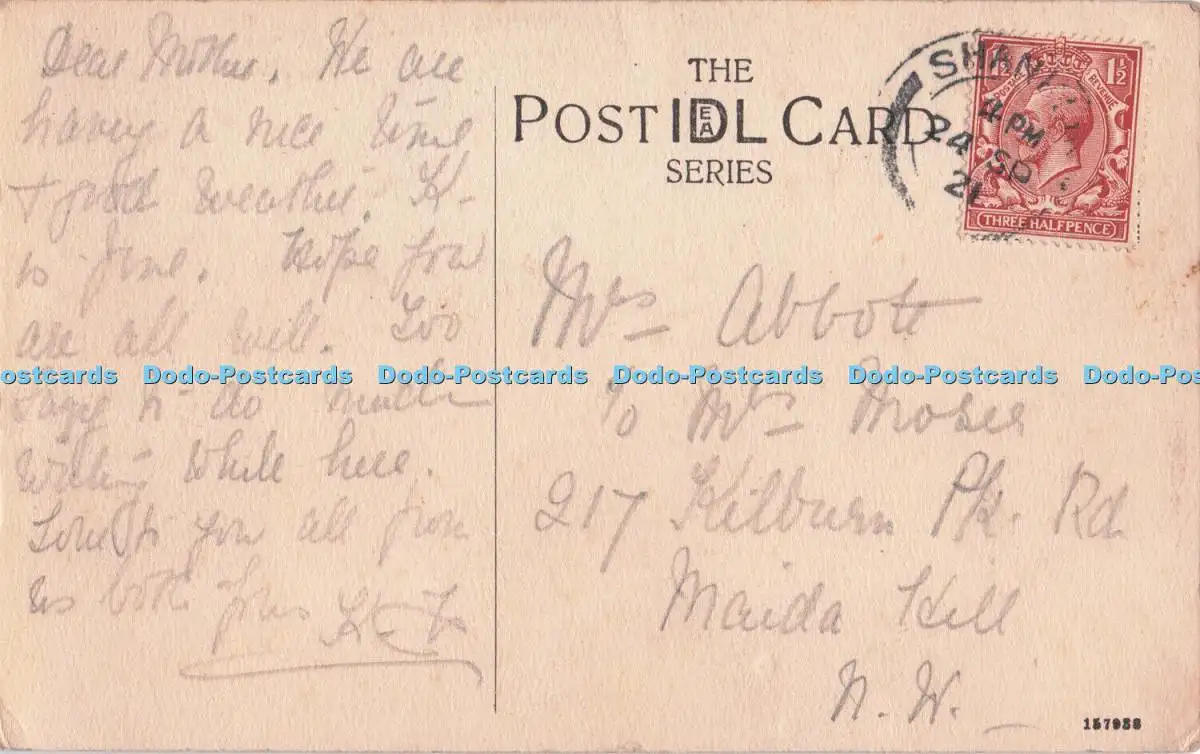 Dear Mother, We are
having a nice time
+ good weather. K-
is fine. Hope you
are all well. Too
Lazy to do much
writing while here.
Love to you all from
us both Yrs
THE
POST IDEAL CARD
SERIES
SHAN
4 PM
24 SP
21
1½
1½
POSTAGE
REVENUE
THREE HALFPENCE
Mrs Abbott
c/o Mrs Moser
217 Kilburn Pk. Rd
Maida Hill
N. W.
ostcards Dodo-Postcards Dodo-Postcards Dodo-Postcards Dodo-Postcards Dodo-Pos